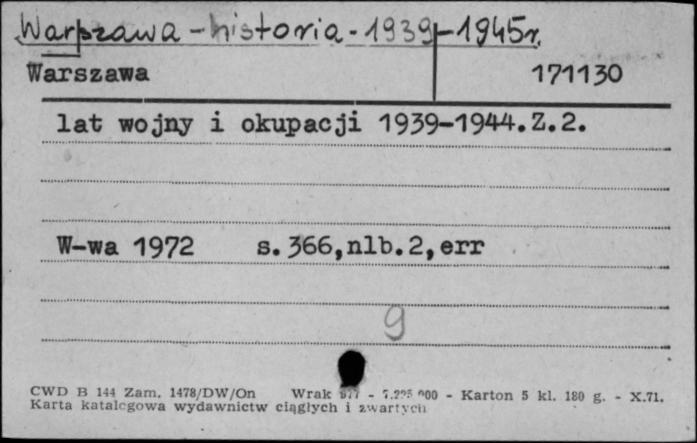 Warszawa - historia - 1939-1945r.
Warszawa 171130
lat wojny i okupacji 1939-1944.Z.2.
W-wa 1972 s.366,nlb.2,err
9
CWD B 144 Zam. 1478/DW/On Wrak - Karton 5 kl. 180 g. - X.71.
Karta katalogowa wydawnictw ciągłych i zwartych